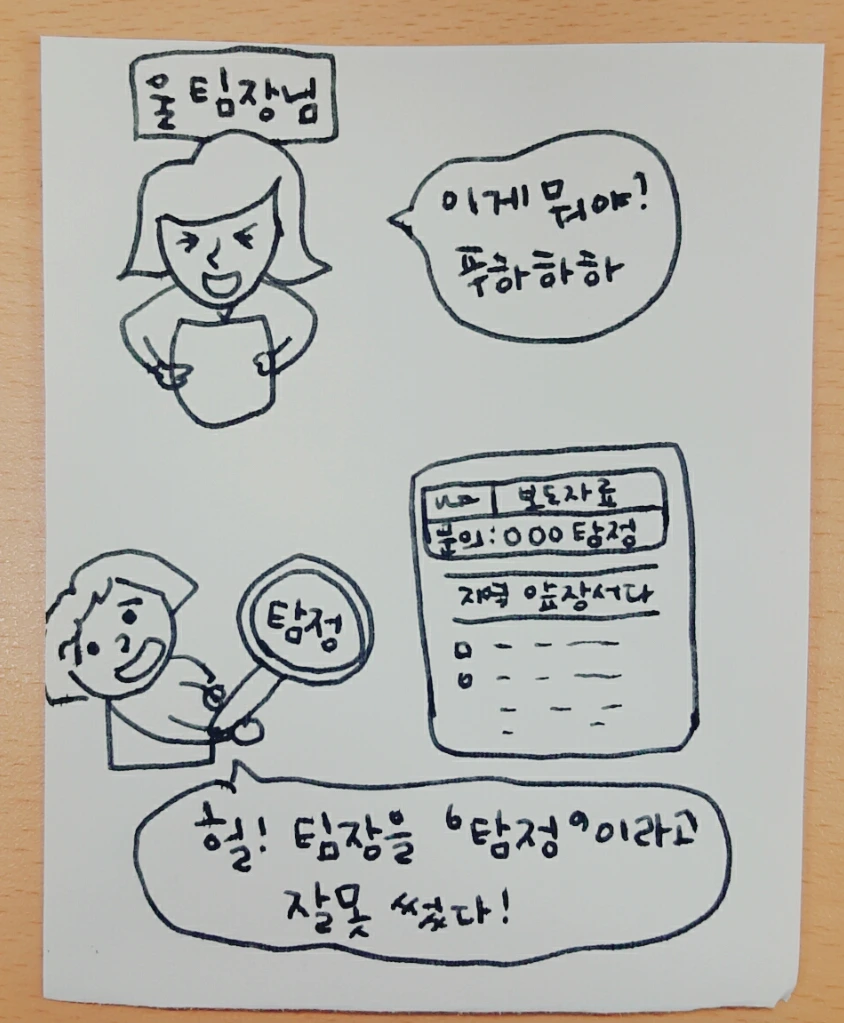 울 팀장님
이게 뭐야?
푸하하하
보도자료
문의: 000 탐정
탐정
앞장서다
헐! 팀장을 '탐정'이라고
잘못 썼다!